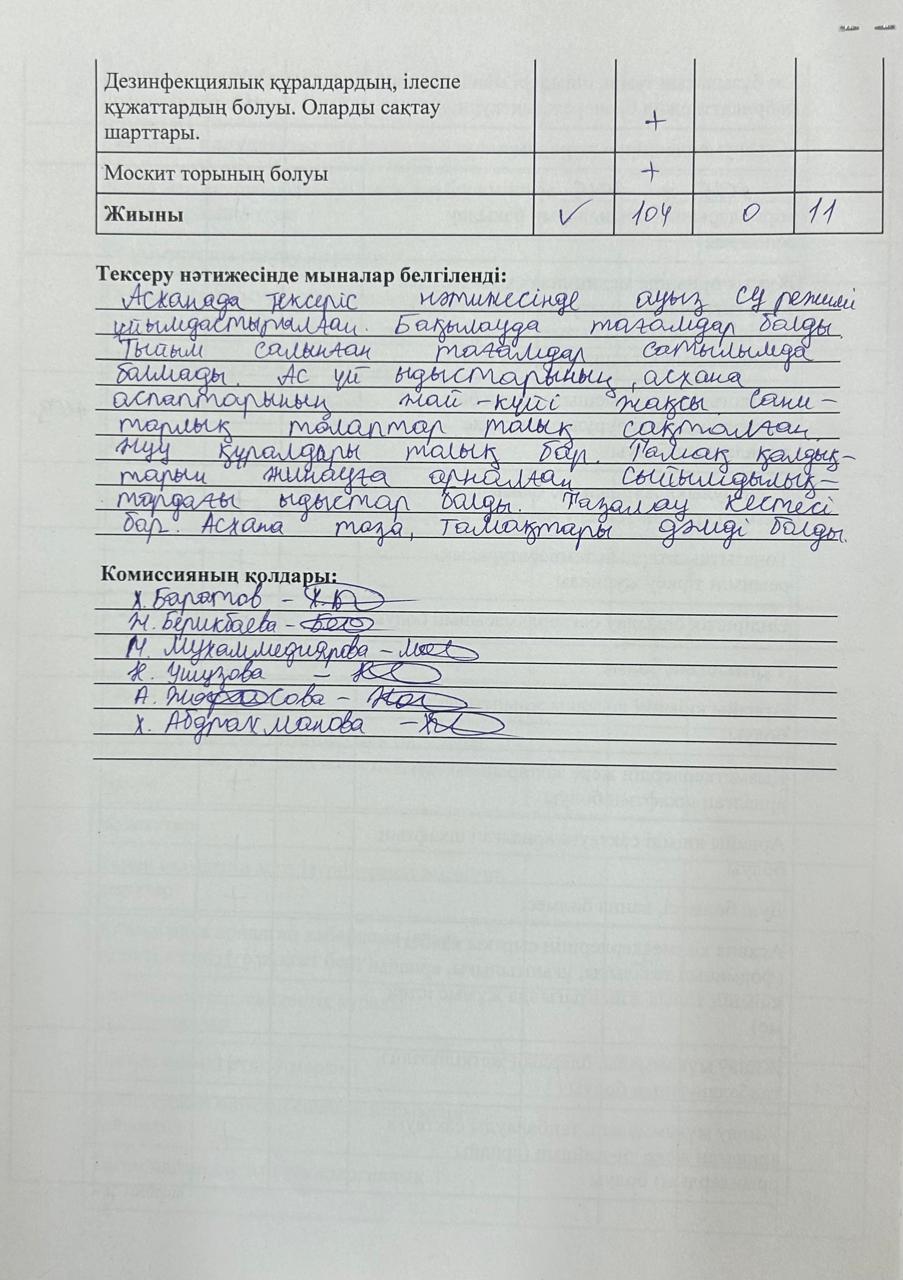 Дезинфекциялық құралдардың, ілеспе
құжаттардың болуы. Оларды сақтау
шарттары. +
Москит торының болуы +
Жиыны ✓ 104 0 11
Тексеру нәтижесінде мыналар белгіленді:
Асханада тексеріс нәтижесінде ауыз су режимі
ұйымдастырылған. Бақылауда тағамдар болды.
Тыйым салынған тағамдар сатылымда
болмады. Ас үй ыдыстарының, асхана
аспаптарының жай-күйі жақсы сани-
тарлық талаптар толық сақталған.
Жуу құралдары толық бар. Тамақ қалдық-
тарын жинауға арналған сыйымдылық-
тардағы ыдыстар болды. Тазалау кестесі
бар. Асхана таза, тамақтары дәмді болды.
Комиссияның қолдары:
Х. Баратов –
Н. Берикбаева –
М. Мухаммедиярова –
Н. Ушузова –
А. сова –
Х. Абдрахманова –